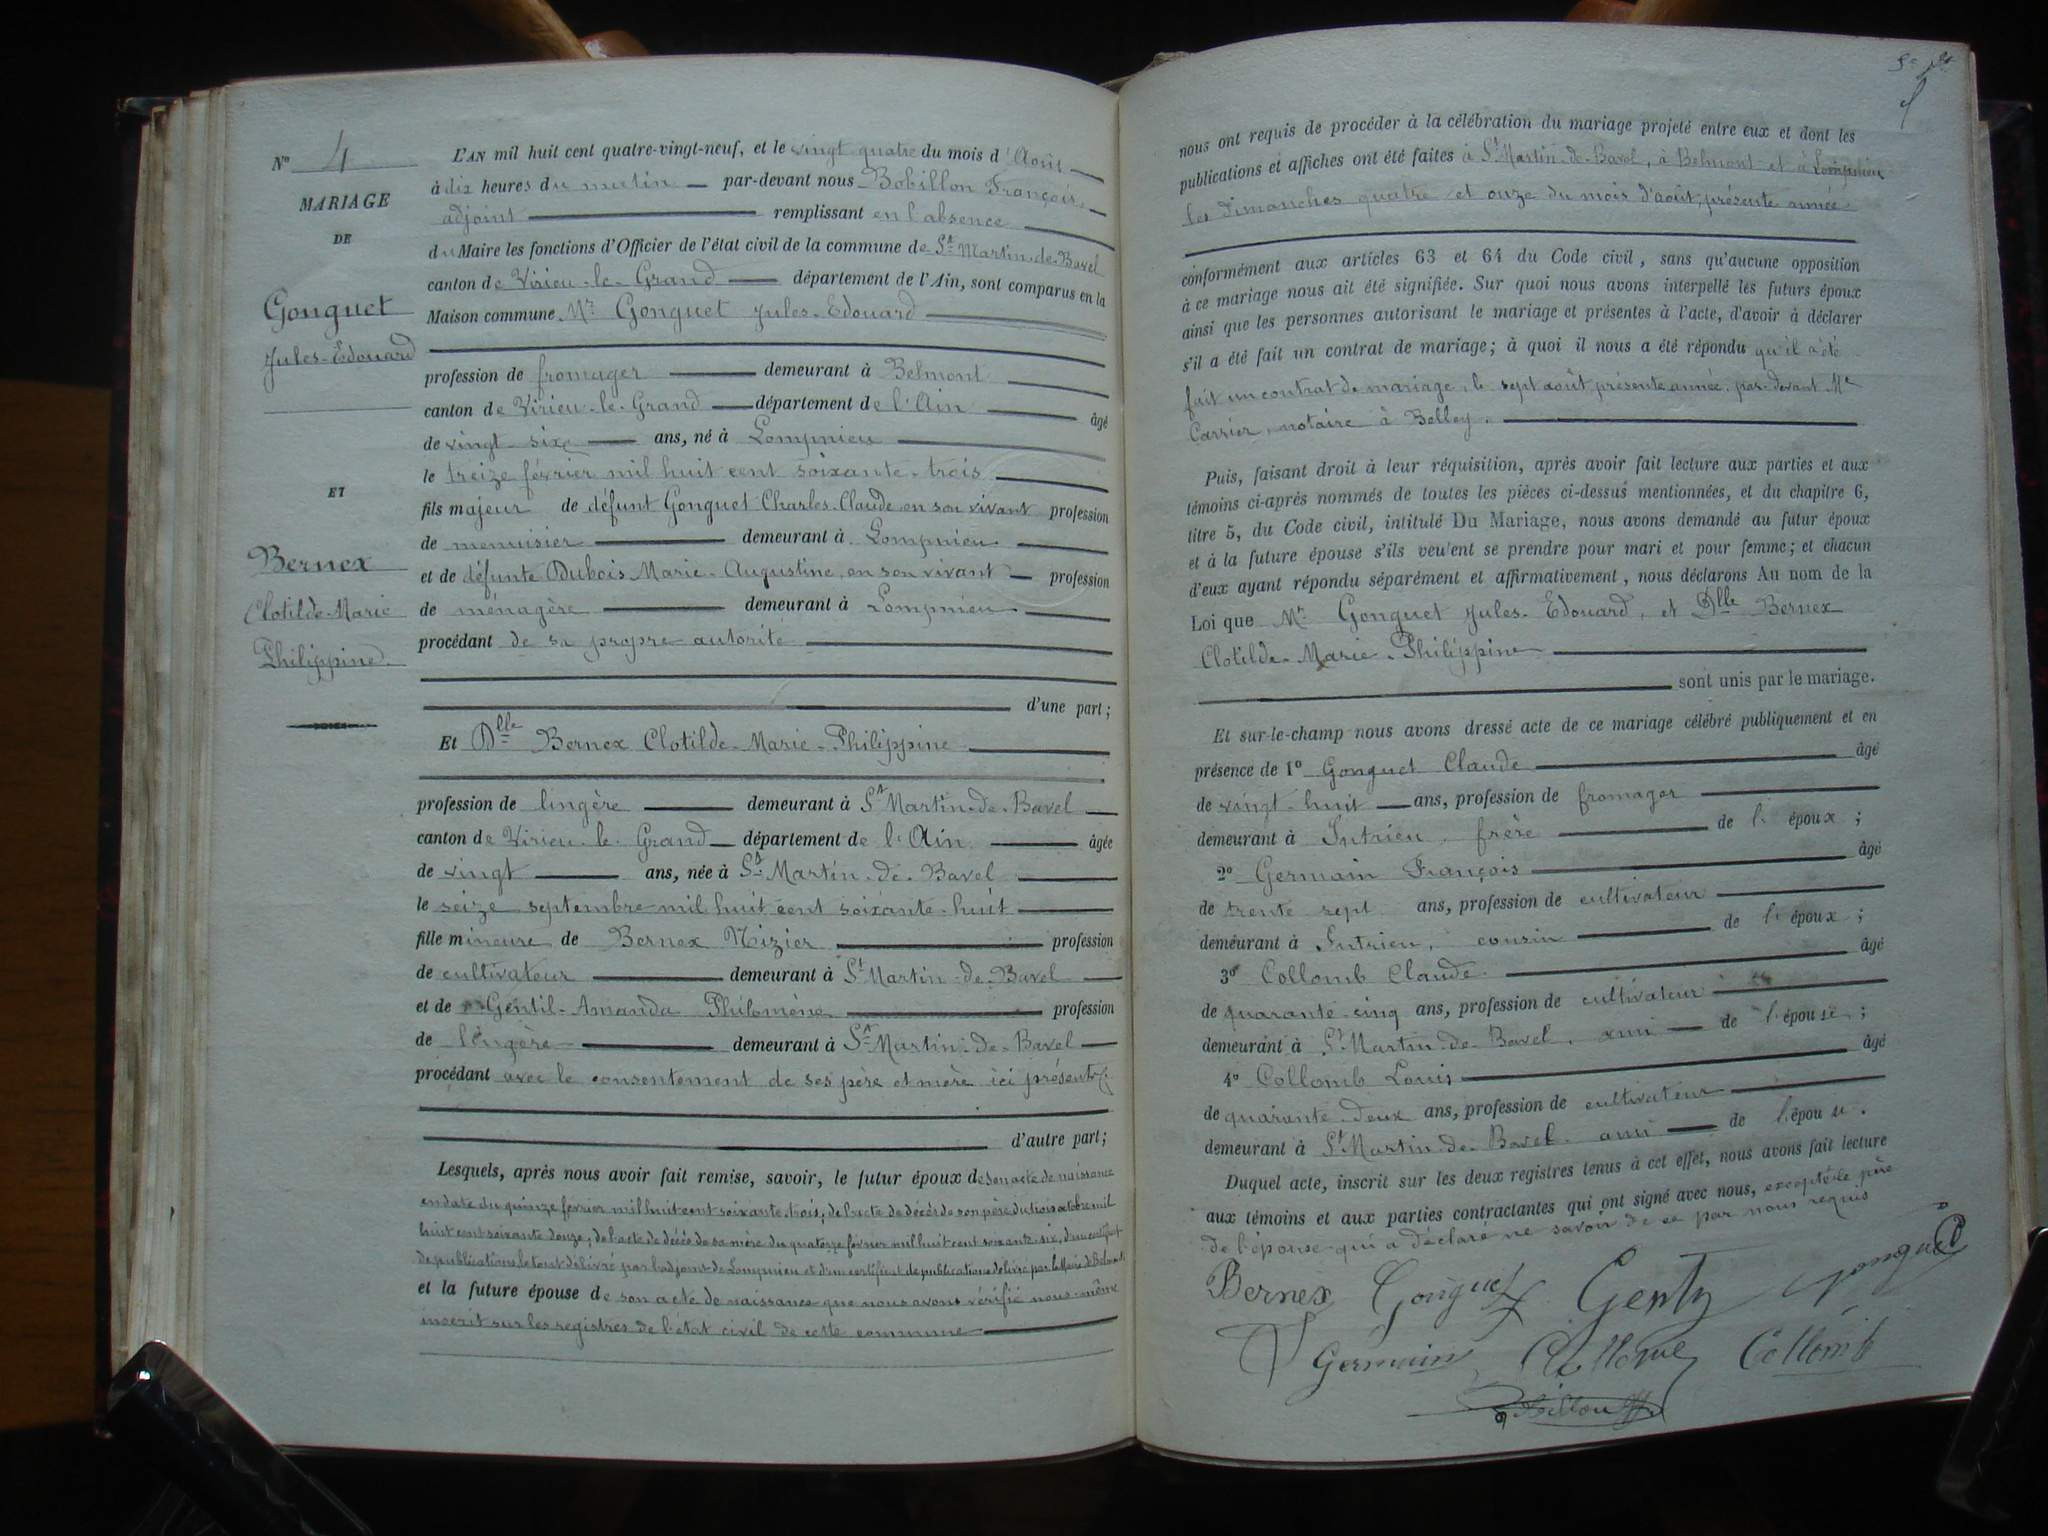 N° 4
MARIAGE
DE
Gonguet
Jules-Edouard
ET
Bernex
Clotilde-Marie
Philippine
L'AN mil huit cent quatre-vingt-neuf, et le vingt quatre du mois d'Août
à dix heures du matin par-devant nous Bobillon François,
adjoint remplissant en l'absence
du Maire les fonctions d'Officier de l'état civil de la commune de St Martin-de-Bavel
canton de Virieu-le-Grand département de l'Ain, sont comparus en la
Maison commune Mr Gonguet Jules-Edouard
profession de fromager demeurant à Belmont
canton de Virieu-le-Grand département de l'Ain âgé
de vingt-six ans, né à Lompnieu
le treize février mil huit cent soixante-trois
fils majeur de défunt Gonguet Charles-Claude, en son vivant profession
de menuisier demeurant à Lompnieu
et de défunte Dubois Marie-Augustine, en son vivant profession
de ménagère demeurant à Lompnieu
procédant de sa propre autorité
d'une part;
Et Dlle Bernex Clotilde-Marie-Philippine
profession de lingère demeurant à St Martin-de-Bavel
canton de Virieu-le-Grand département de l'Ain âgée
de vingt ans, née à St Martin-de-Bavel
le seize septembre mil huit cent soixante-huit
fille mineure de Bernex Nizier profession
de cultivateur demeurant à St Martin-de-Bavel
et de Gentil-Amanda Philomène profession
de lingère demeurant à St Martin-de-Bavel
procédant avec le consentement de ses père et mère ici présents.
d'autre part;
Lesquels, après nous avoir fait remise, savoir, le futur époux de son acte de naissance
en date du quinze février mil huit cent soixante-trois, de l'acte de décès de son père du trois octobre mil
huit cent soixante douze; de l'acte de décès de sa mère du quatorze février mil huit cent soixante-six, d'un certificat
de publications, le tout délivré par l'adjoint de Lompnieu et d'un certificat de publications délivré par le Maire de Belmont
et la future épouse de son acte de naissance que nous avons vérifié nous-même
inscrit sur les registres de l'état civil de cette commune
nous ont requis de procéder à la célébration du mariage projeté entre eux et dont les
publications et affiches ont été faites à St Martin-de-Bavel, à Belmont et à Lompnieu
les dimanches quatre et onze du mois d'août, présente année
conformément aux articles 63 et 64 du Code civil, sans qu'aucune opposition
à ce mariage nous ait été signifiée. Sur quoi nous avons interpellé les futurs époux
ainsi que les personnes autorisant le mariage et présentes à l'acte, d'avoir à déclarer
s'il a été fait un contrat de mariage; à quoi il nous a été répondu qu'il a été
fait un contrat de mariage, le sept août, présente année, par-devant Me
Carrier, notaire à Belley.
Puis, faisant droit à leur réquisition, après avoir fait lecture aux parties et aux
témoins ci-après nommés de toutes les pièces ci-dessus mentionnées, et du chapitre 6,
titre 5, du Code civil, intitulé Du Mariage, nous avons demandé au futur époux
et à la future épouse s'ils veulent se prendre pour mari et pour femme; et chacun
d'eux ayant répondu séparément et affirmativement, nous déclarons Au nom de la
Loi que Mr Gonguet Jules-Edouard, et Dlle Bernex
Clotilde-Marie-Philippine
sont unis par le mariage.
Et sur-le-champ nous avons dressé acte de ce mariage célébré publiquement et en
présence de 1° Gonguet Claude âgé
de vingt-huit ans, profession de fromager
demeurant à Sutrieu, frère de l'époux;
2° Germain François âgé
de trente sept ans, profession de cultivateur
demeurant à Sutrieu, cousin de l'époux;
3° Collomb Claude âgé
de quarante-cinq ans, profession de cultivateur
demeurant à St Martin-de-Bavel, ami de l'épouse;
4° Collomb Louis âgé
de quarante-deux ans, profession de cultivateur
demeurant à St Martin-de-Bavel, ami de l'épouse.
Duquel acte, inscrit sur les deux registres tenus à cet effet, nous avons fait lecture
aux témoins et aux parties contractantes qui ont signé avec nous, excepté le père
de l'épouse qui a déclaré ne savoir de ce par nous requis
Bernex Gonguet Gentil Gonguet
Germain Collomb